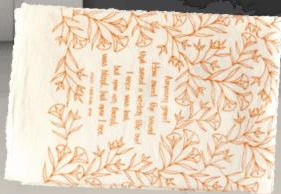 Amazing grace!
How sweet the sound
that saved a wretch like me!
I once was lost,
but now am found,
was blind, but now I see.